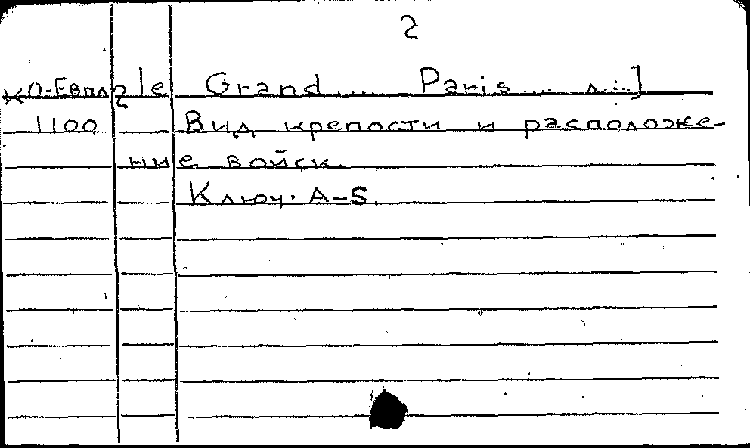 2
le Grand ... Paris ...
1100 Вид крепости и расположе-
ние войск.
Ключ. A-S.